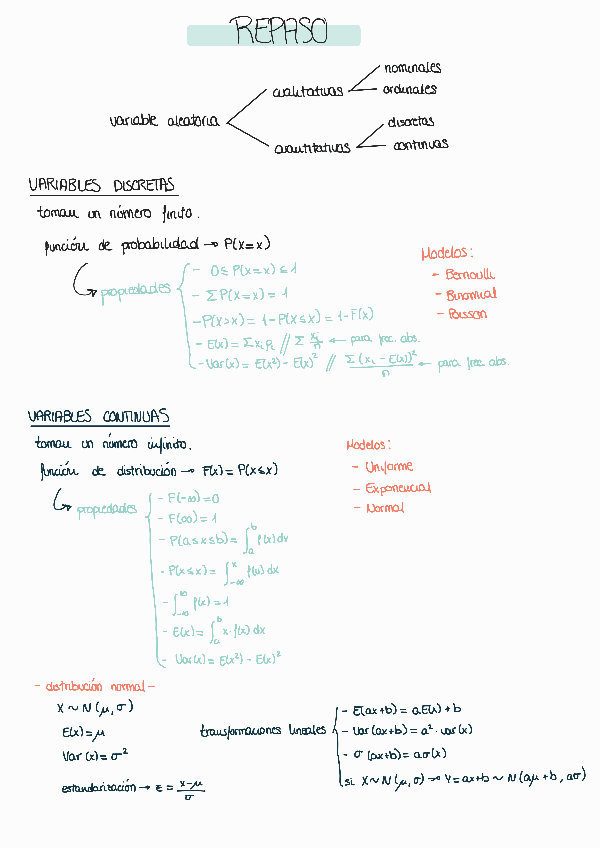 REPASO
variable aleatoria
cualitativas
nominales
ordinales
cuantitativas
discretas
continuas
VARIABLES DISCRETAS
toman un número finito.
función de probabilidad → P(X=x)
propiedades
- 0≤P(X=x)≤1
- ΣP(X=x)=1
- P(X>x) = 1-P(X≤x) = 1-F(x)
- E(x) = Σxᵢpᵢ // Σ xᵢ/n ← para frec. abs.
- Var(x) = E(x²) - E(x)² // Σ(xᵢ - E(x))²/n ← para frec abs.
Modelos:
- Bernoulli
- Binomial
- Poisson
VARIABLES CONTINUAS
toman un número infinito.
función de distribución → F(x) = P(X≤x)
propiedades
- F(-∞)=0
- F(∞)=1
- P(a≤x≤b) = ∫ₐᵇ f(x)dv
- P(X≤x) = ∫₋∞ˣ f(u)dx
- ∫₋∞^∞ f(x)=1
- E(x) = ∫ₐᵇ x·f(x)dx
- Var(x) = E(x²) - E(x)²
Modelos:
- Uniforme
- Exponencial
- Normal
- distribución normal -
X ~ N(μ,σ)
E(x)=μ
Var(x)=σ²
estandarización → z = x-μ/σ
transformaciones lineales
- E(ax+b) = aE(x)+b
- Var(ax+b) = a²·var(x)
- σ(ax+b) = aσ(x)
si X~N(μ,σ) → Y=ax+b ~ N(aμ+b, aσ)